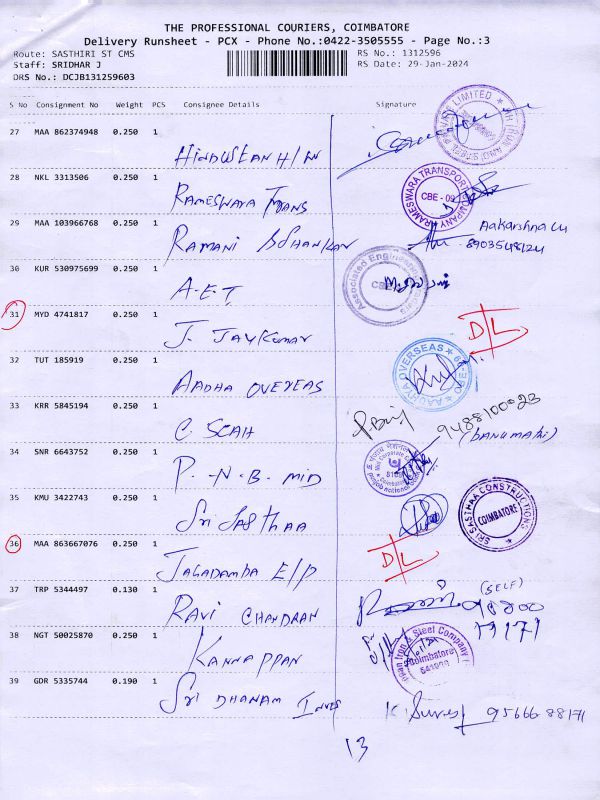 THE PROFESSIONAL COURIERS, COIMBATORE
Delivery Runsheet - PCX - Phone No.:0422-3505555 - Page No.:3
Route: SASTHIRI ST CMS RS No.: 1312596
Staff: SRIDHAR J RS Date: 29-Jan-2024
DRS No.: DCJB131259603
S No Consignment No Weight PCS Consignee Details Signature
27 MAA 862374948 0.250 1
HINDUSTAN H/W
28 NKL 3313506 0.250 1
RAMESWARA TRANS
RAMESWARA TRANSPORT COMPANY
CBE - 09
29 MAA 103966768 0.250 1
RAMANI BSHANKAR
Aakarshna
8903548124
30 KUR 530975699 0.250 1
A.E.T
Associated Engineering
31 MYD 4741817 0.250 1
J. JAYKUMAR
D/L
32 TUT 185919 0.250 1
AADHA OVEREAS
AADHYA OVERSEAS
33 KRR 5845194 0.250 1
C. SCAH
9488100023
(BANUMATHI)
34 SNR 6643752 0.250 1
P.N.B. MID
35 KMU 3422743 0.250 1
Sri SASTHAA
SRI SASTHAA CONSTRUCTIONS
COIMBATORE
36 MAA 863667076 0.250 1
JAGADAMBA E/P
D/L
37 TRP 5344497 0.130 1
RAVI CHANDRAN
(SELF)
98800
19171
38 NGT 50025870 0.250 1
KANNAPPAN
Iron & Steel Company
Coimbatore
39 GDR 5335744 0.190 1
Sri DHANAM INVES
K. Suresh 95666 88171
13